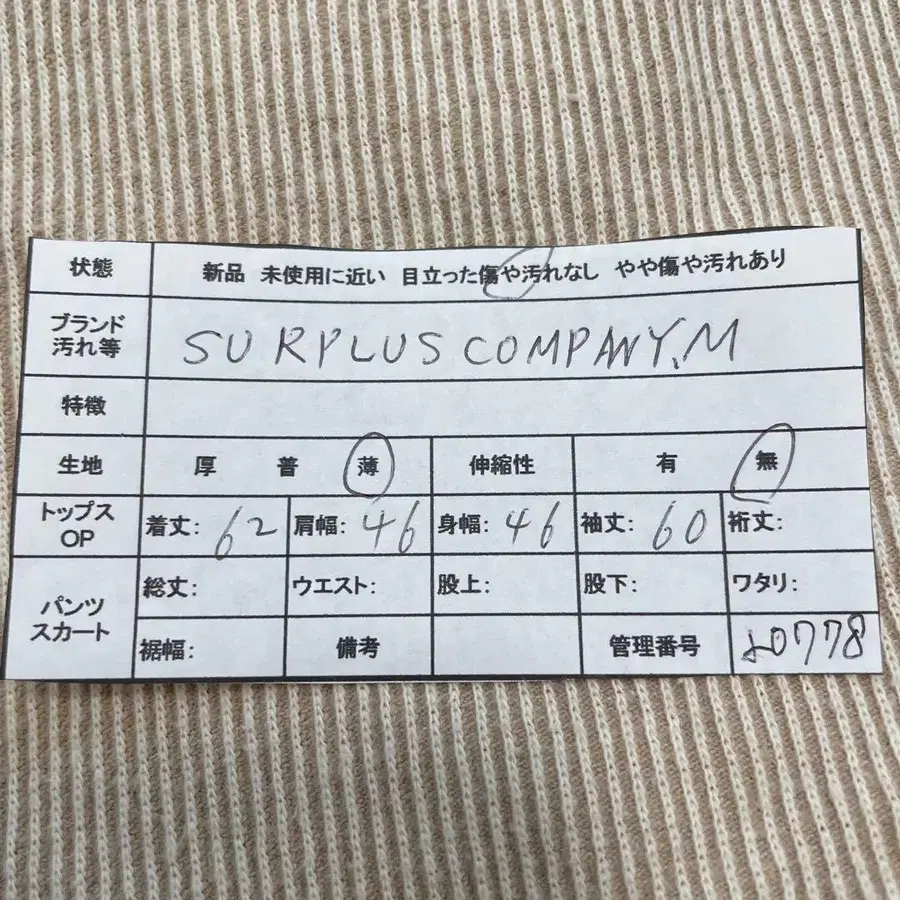 状態 新品 未使用に近い 目立った傷や汚れなし やや傷や汚れあり
ブランド
汚れ等
SURPLUS COMPANY. M
特徴
生地 厚 普 薄 伸縮性 有 無
トップス
OP
着丈: 62 肩幅: 46 身幅: 46 袖丈: 60 裄丈:
パンツ
スカート
総丈: ウエスト: 股上: 股下: ワタリ:
裾幅: 備考 管理番号 よ0778